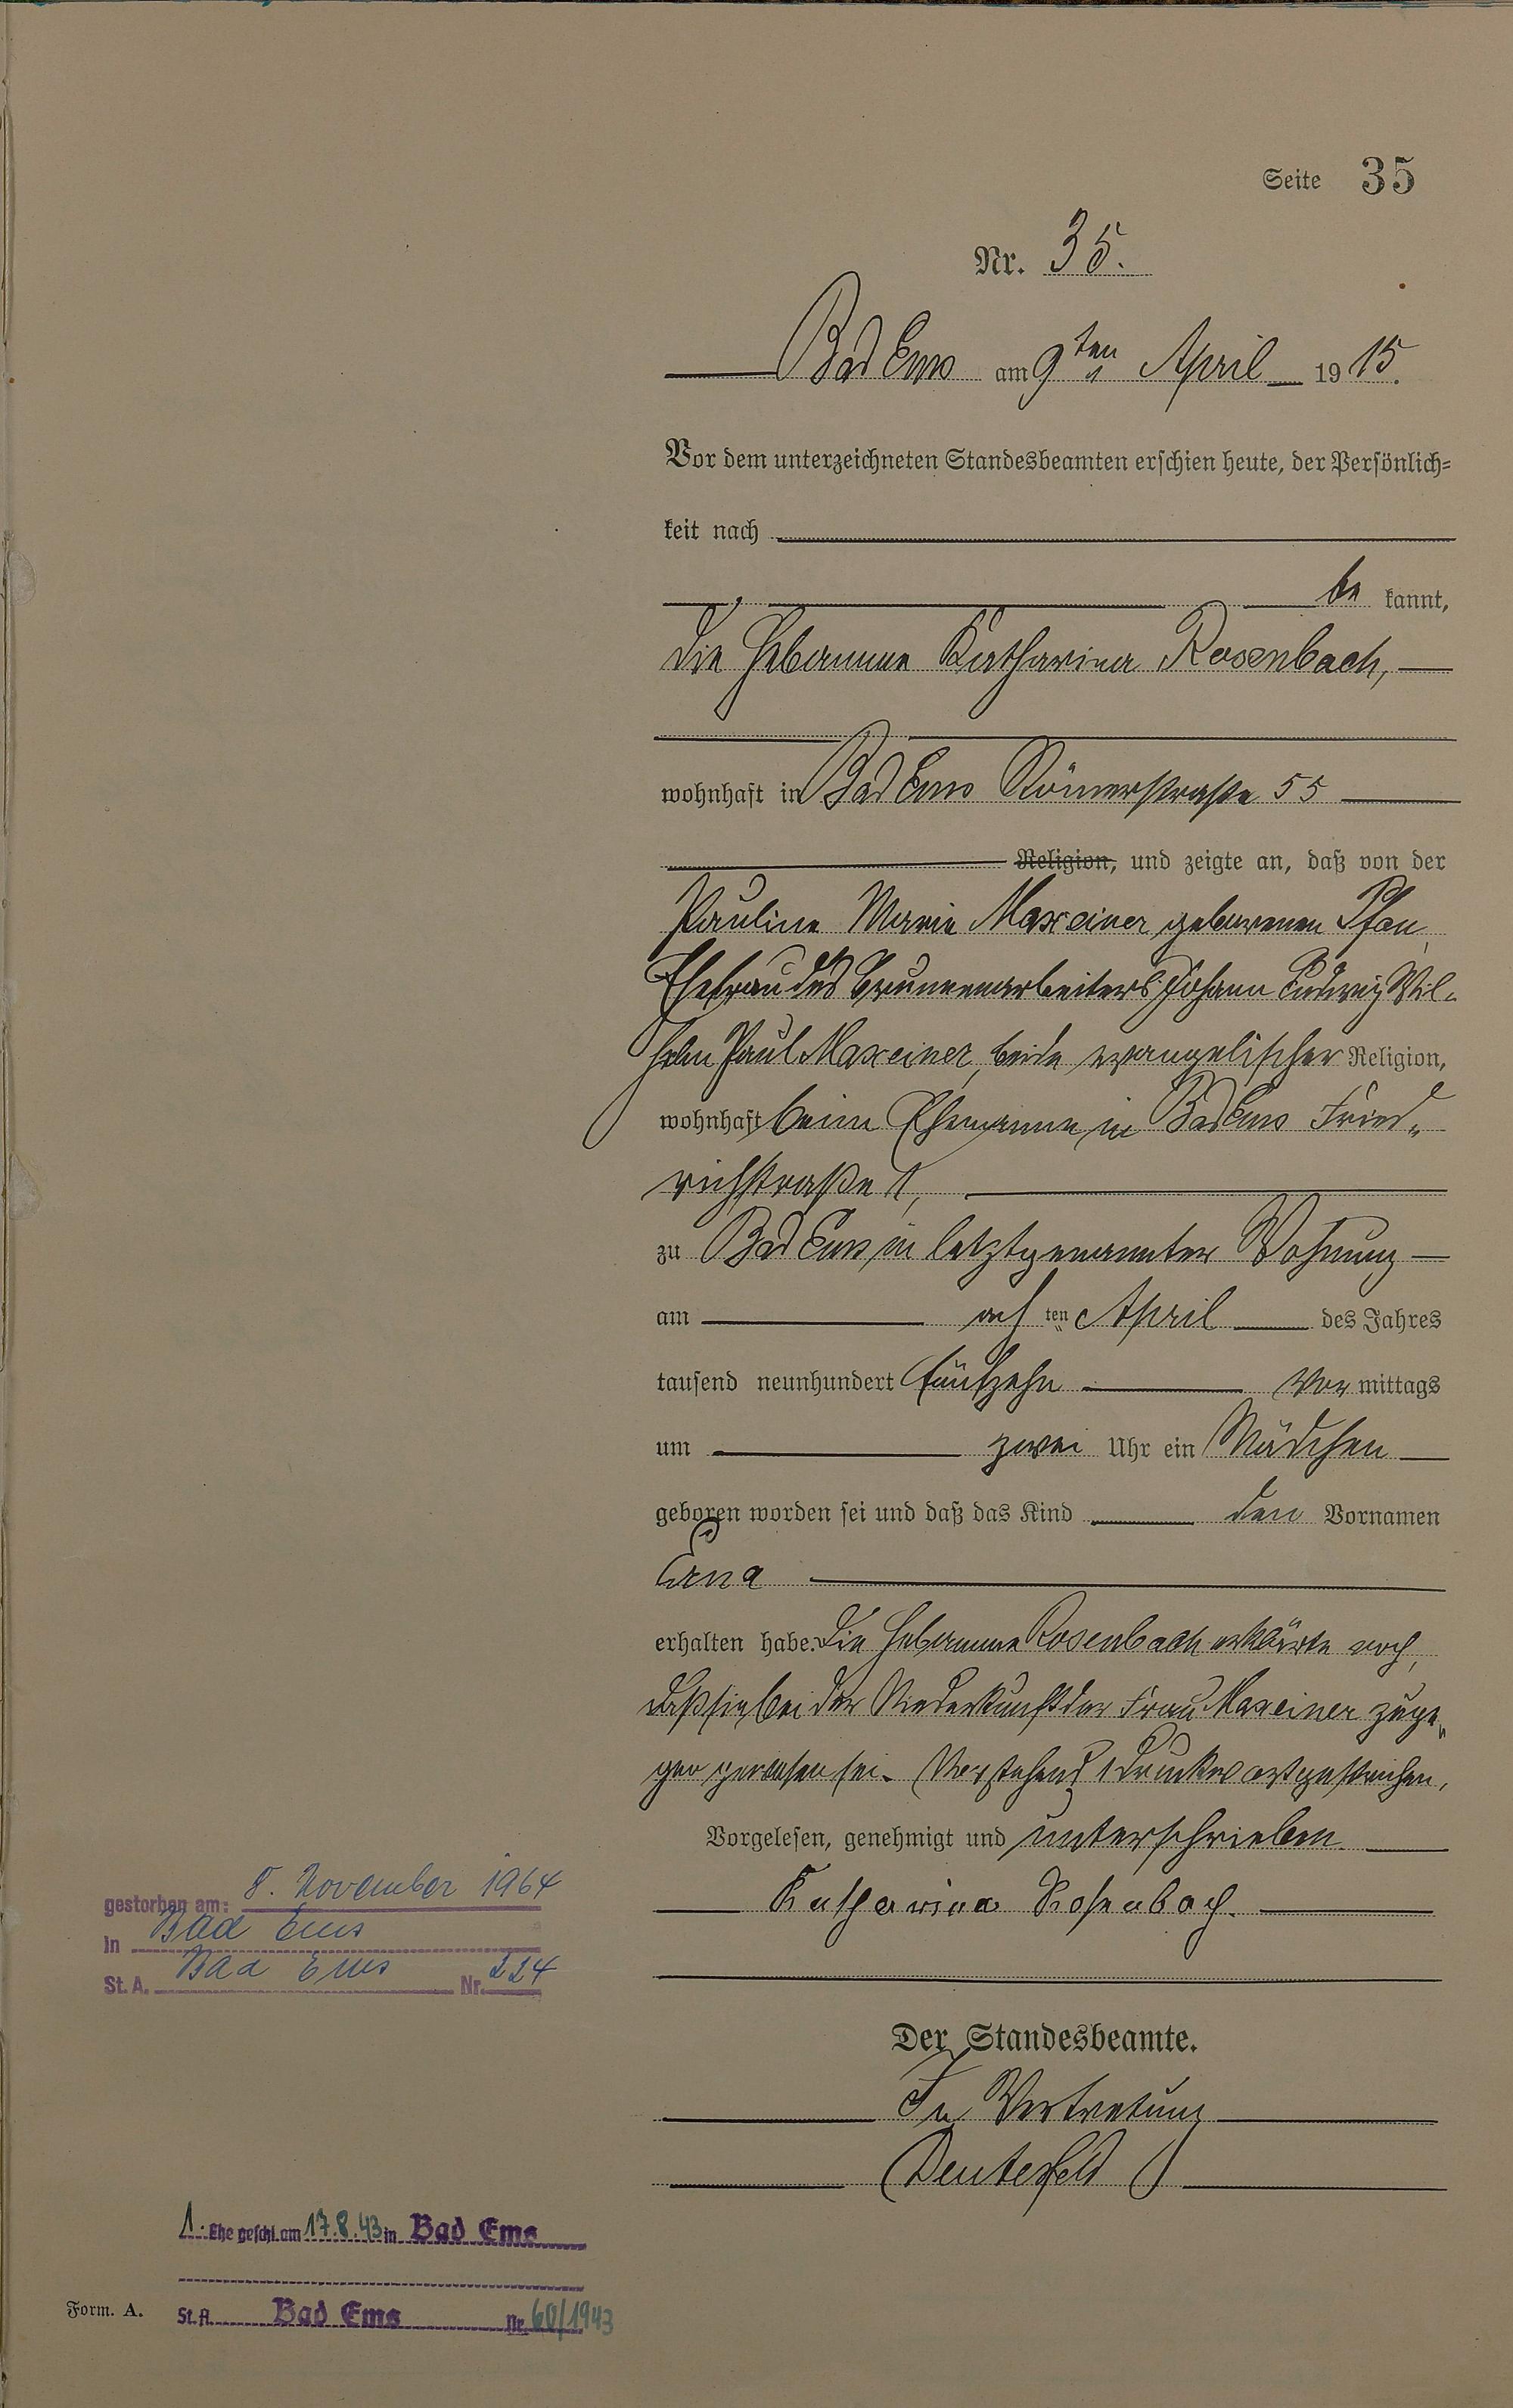 Seite 35
Nr. 35.
Bad Ems am 9ten April 1915.
Vor dem unterzeichneten Standesbeamten erschien heute, der Persönlich-
keit nach
be kannt,
die Hebamme Katharina Rosenbach,
wohnhaft in Bad Ems Römerstraße 55
Religion, und zeigte an, daß von der
Pauline Marie Maxeiner geborenen Pfau,
Ehefrau des Brunnenarbeiters Johann Ludwig Wil-
helm Paul Maxeiner, beide evangelischer Religion,
wohnhaft beim Ehemanne in Bad Ems Fried-
richstraße 1,
zu Bad Ems in letztgenannter Wohnung
am acht ten April des Jahres
tausend neunhundert fünfzehn Vor mittags
um zwei Uhr ein Mädchen
geboren worden sei und daß das Kind den Vornamen
Erna
erhalten habe. Die Hebamme Rosenbach erklärte noch,
daß sie bei der Niederkunft der Frau Maxeiner zuge-
gen gewesen sei. Vorstehend 1 Druckwort gestrichen.
Vorgelesen, genehmigt und unterschrieben.
Katharina Rosenbach.
Der Standesbeamte.
In Vertretung
gestorben am: 8. November 1964
In Bad Ems
St. A. Bad Ems Nr. 224
1. Ehe geschl. am 17.8.43 in Bad Ems
Form. A. St. A. Bad Ems Nr. 60/1943